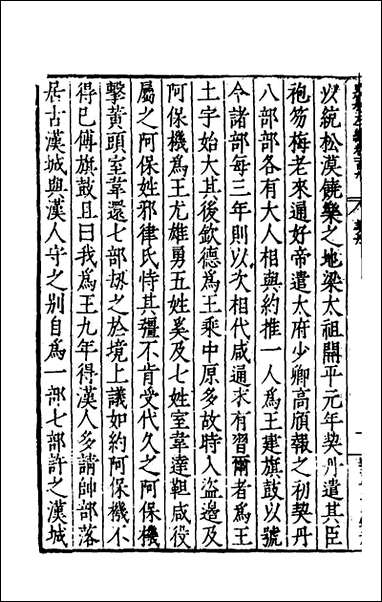 以統松漠饒樂之地梁太祖開平元年契丹遣其臣
袍笏梅老來通好帝遣太府少卿高頎報之初契丹
八部部各有大人相與約推一人為王建旗鼓以號
令諸部每三年則以次相代咸通末有習爾者為王
土宇始大其後欽德為王乘中原多故時入盜邊及
阿保機為王尤雄勇五姓奚及七姓室韋達靼咸役
屬之阿保姓邪律氏恃其彊不肯受代久之阿保機
擊黃頭室韋還七部刼之於境上議如約阿保機不
得已傅旗鼓且曰我為王九年得漢人多請帥部落
居古漢城與漢人守之别自為一部七部許之漢城